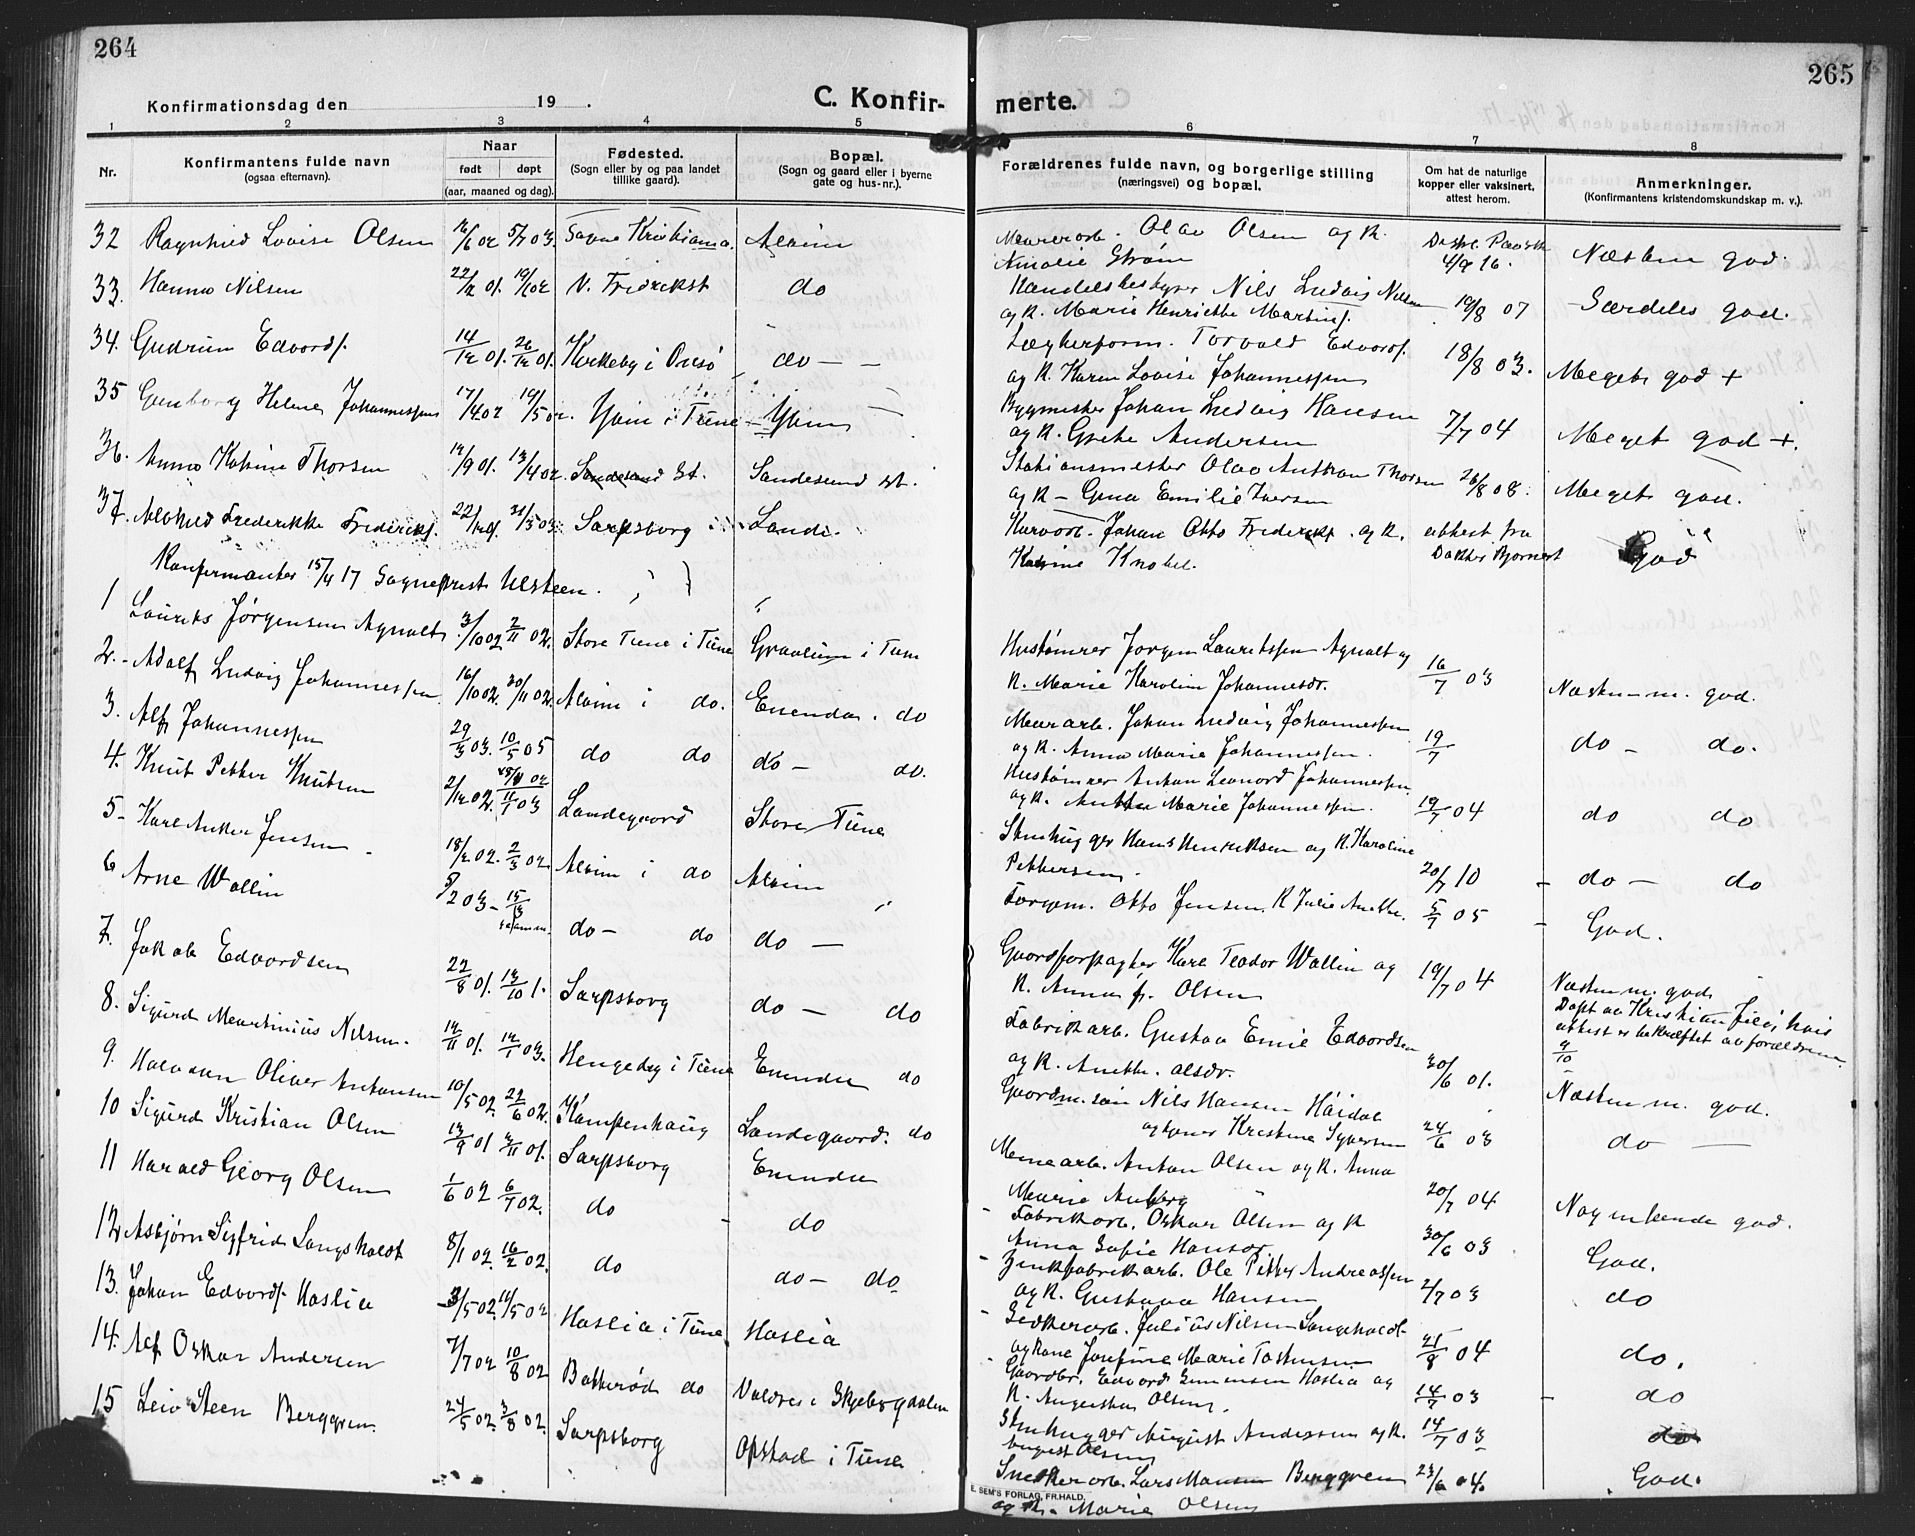 264
265
Konfirmationsdag den 19 .
C. Konfir-
merte.
1 2 3 4 5 6 7 8
Nr.
Konfirmantens fulde navn
(ogsaa efternavn).
Naar
født døpt
(aar, maaned og dag).
Fødested.
(Sogn eller by og paa landet
tillike gaard).
Bopæl.
(Sogn og gaard eller i byerne
gate og hus-nr.).
Forældrenes fulde navn, og borgerlige stilling
(næringsvei) og bopæl.
Om hat de naturlige
kopper eller vaksinert,
attest herom.
Anmerkninger.
(Konfirmantens kristendomskundskap m. v.).
32 Ragnhild Lovise Olsen 5/7 03. Alvim
Murerarb. Olav Olsen og K.
Amalie Strøm 4/9 16. Næsten god.
33. Hanna Nilsen 19/1 02 V. Fredrikst do
Handelsbestyrer Nils Ludvig Nilsen
og K. Marie Henriette Martins. 19/8 07 Særdeles god.
34. Gudrun Edvards. 14/12 01. 26/12 01. Kirkeby i Onsø do — —
Torvald Edvards.
og K. Karen Lovise Johannessen 18/8 03. Meget god +
35 Helene Johannessen 17/4 02 19/5 02. Yven i Tune Yven
Bygmester Johan Ludvig Hansen
og K. Grethe Andersen 7/7 04 Meget god +.
36. Anna Katrine Thorsen /9 01. 13/4 02. Sandesund St. Sandesund st.
Stationsmester Olav Anthon Thorsen
og K — Gina Emilie Iversen 26/8 08. Meget god.
37. Alvhild Frederikke Fredriks. Sarpsborg Lande.
Johan Otto Fredriks. og K. attest fra
Katrine Knobel. Doktor Bjørnest God
Konfirmanter 15/4 17 Sogneprest Ulsteen.
1 Laurits Jørgensen Agnalt 3/10 02 2/11 02. Store Tune i Tune Gravlum i Tune
Hustømrer Jørgen Lauritssen Agnalt og
K. Marie Karoline Johannesdr. 16/7 03 Næsten m. god.
2. Adolf Ludvig Johannessen 16/10 02. 30/11 02. Alvim i do. Enenda. do
Murarb. Johan Ludvig Johannessen
og K. Anna Marie Johannessen. 19/7 do — do.
3. Alf Johannessen 29/3 03. 10/5 05 do do do — do.
Hustømrer Anton Leonard Johannessen
og K. Anette Marie Johannessen. 19/7 04 do do
4. Knut Petter Knutsen 2/12 02. 11/1 03 Landegaard Store Tune
Stenhugger Hans Henriksen og K. Karoline
Pettersen. 20/7 10 do — do
5 Karl Anker Jensen 18/2 02. 2/3 02. Alvim i do Alvim
Otto Jensen. K Julie Anette. 5/7 05 God.
6 Arne Wallin do — do do —
Gaardforpagter Karl Teodor Wallin og
K. Anna f. Olsen 19/7 04 Næsten m. god.
Døpt av hvis
attest er bekræftet av forældrene
7. Jakob Edvardsen 22/8 01. 13/10 1. Sarpsborg do — do
Fabrikarb. Gustav Emil Edvardsen
og K. Anette. Olsdr. 30/6 01. Næsten m. god.
8. Sigurd Martinius Nilsen. Hengedag i Tune Enenda do
Gaardm. søn Nils Hansen Haidal
og kone Kristine Syversen 24/6 03 do —
9. Halvdan Oliver Antonsen 10/5 02. 22/6 02. Kampenhaug Landegaard. do
Murearb. Anton Olsen og K. Anna
Marie 20/7 04 Nogenlunde god.
10 Sigurd Kristian Olsen Sarpsborg Enenda
Fabrikarb. Oskar Olsen og K
Anna Sofie Hansdr. 30/6 03 God.
11 Harald Georg Olsen 1/6 02 6/7 02. do do
Zinkfabrikarb. Ole Petter Andreassen
og K. Gustava Hansen 2/7 03 do
12 Asbjørn Sigfrid Langsholdt 8/1 02. 16/2 02. do do — do
Julius Nilsen Langsholdt
og kone Josefine Marie Torstensen 21/8 04 do.
13. Johan Edvards. Haslia 3/5 02. Haslia i Tune Haslia
Gaardbr. Edvard Haslia og
K. Augusta Olsen. 14/7 03 do
14. Alf Oskar Andersen 7/7 02 10/8 02 Batterød do Valdre i Skjebergdalen
Stenhugger August Andersen og K.
August Olsen 14/7 03 do
15 Leiv Steen Berggren. 24/5 02. 3/8 02. Sarpsborg Opstad i Tune
Snekkerarb. Lars Berggren
og K. Marie Olsen 23/6 04. God.
E. SEM'S FORLAG, FR.HALD.